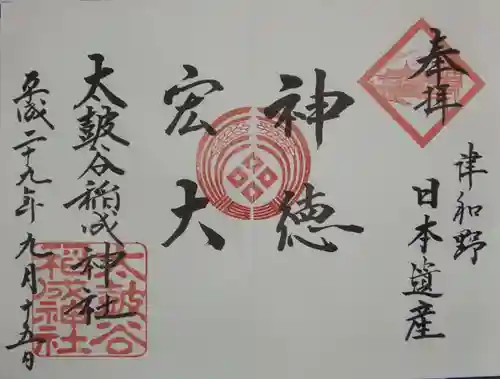 奉拝
津和野
日本遺産
神徳
宏大
太皷谷稲成神社
平成二十九年九月十五日
太皷谷
稲成神社